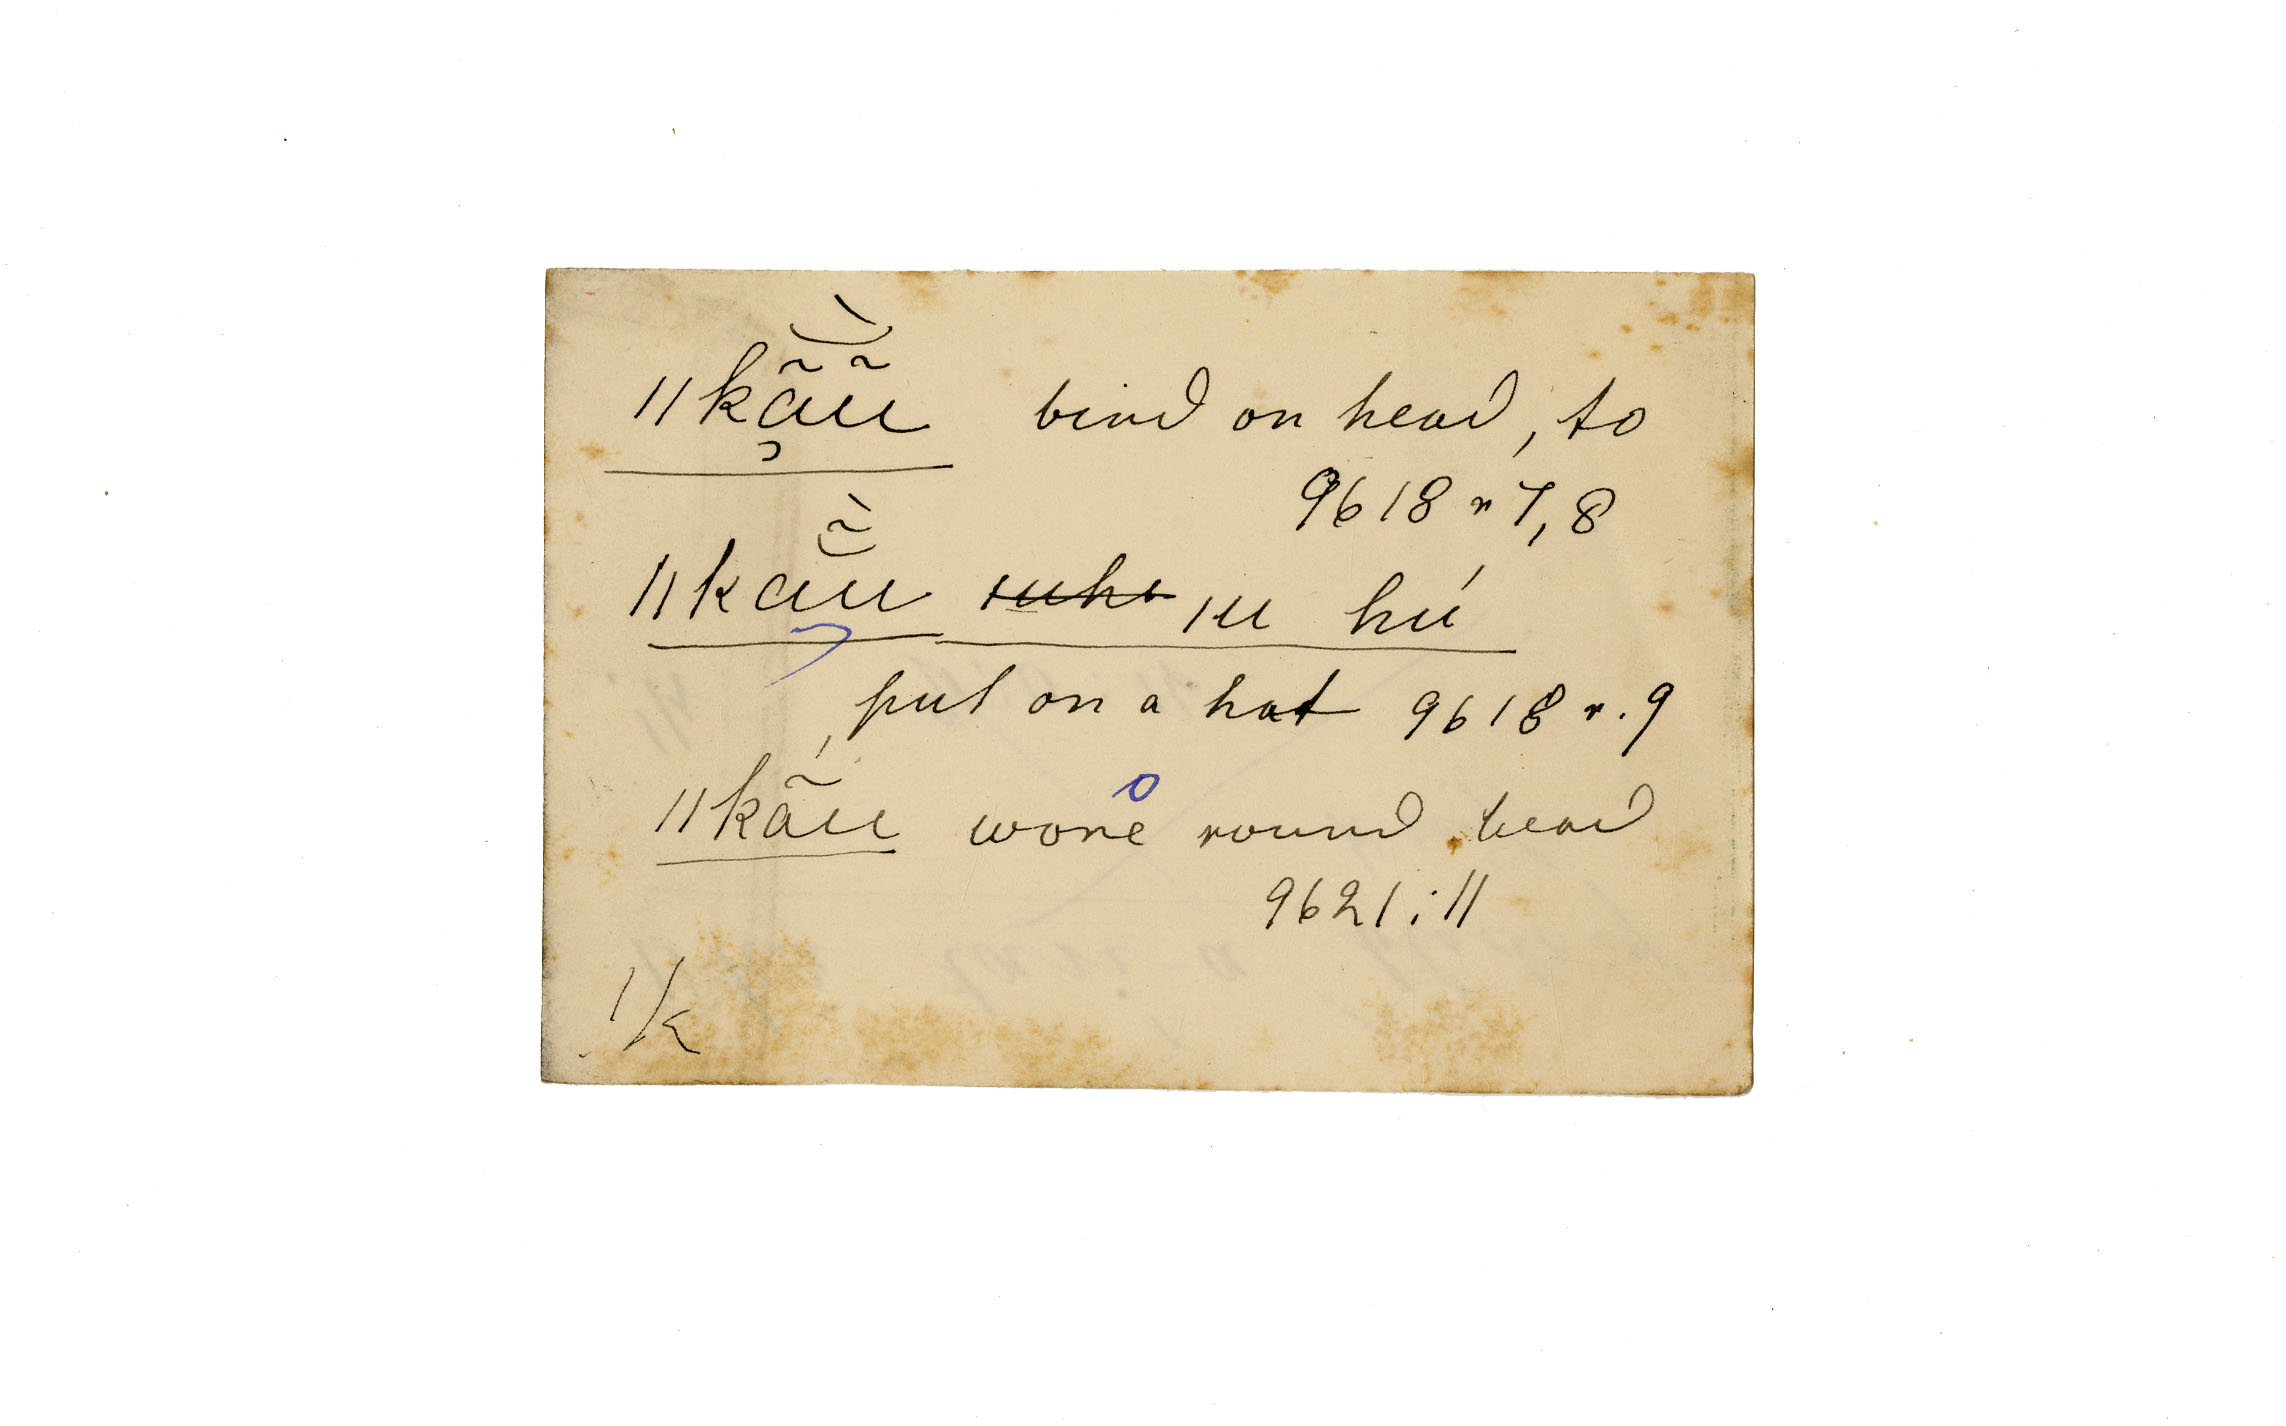 ǁkã̰ũ bind on head, to
9618 r 7, 8
ǁkaũ̆̀ ~~ıuhı~~ ǀu hú
put on a hat 9618 r. 9
ǁkãu wore round head
9621 : 11
ǁk